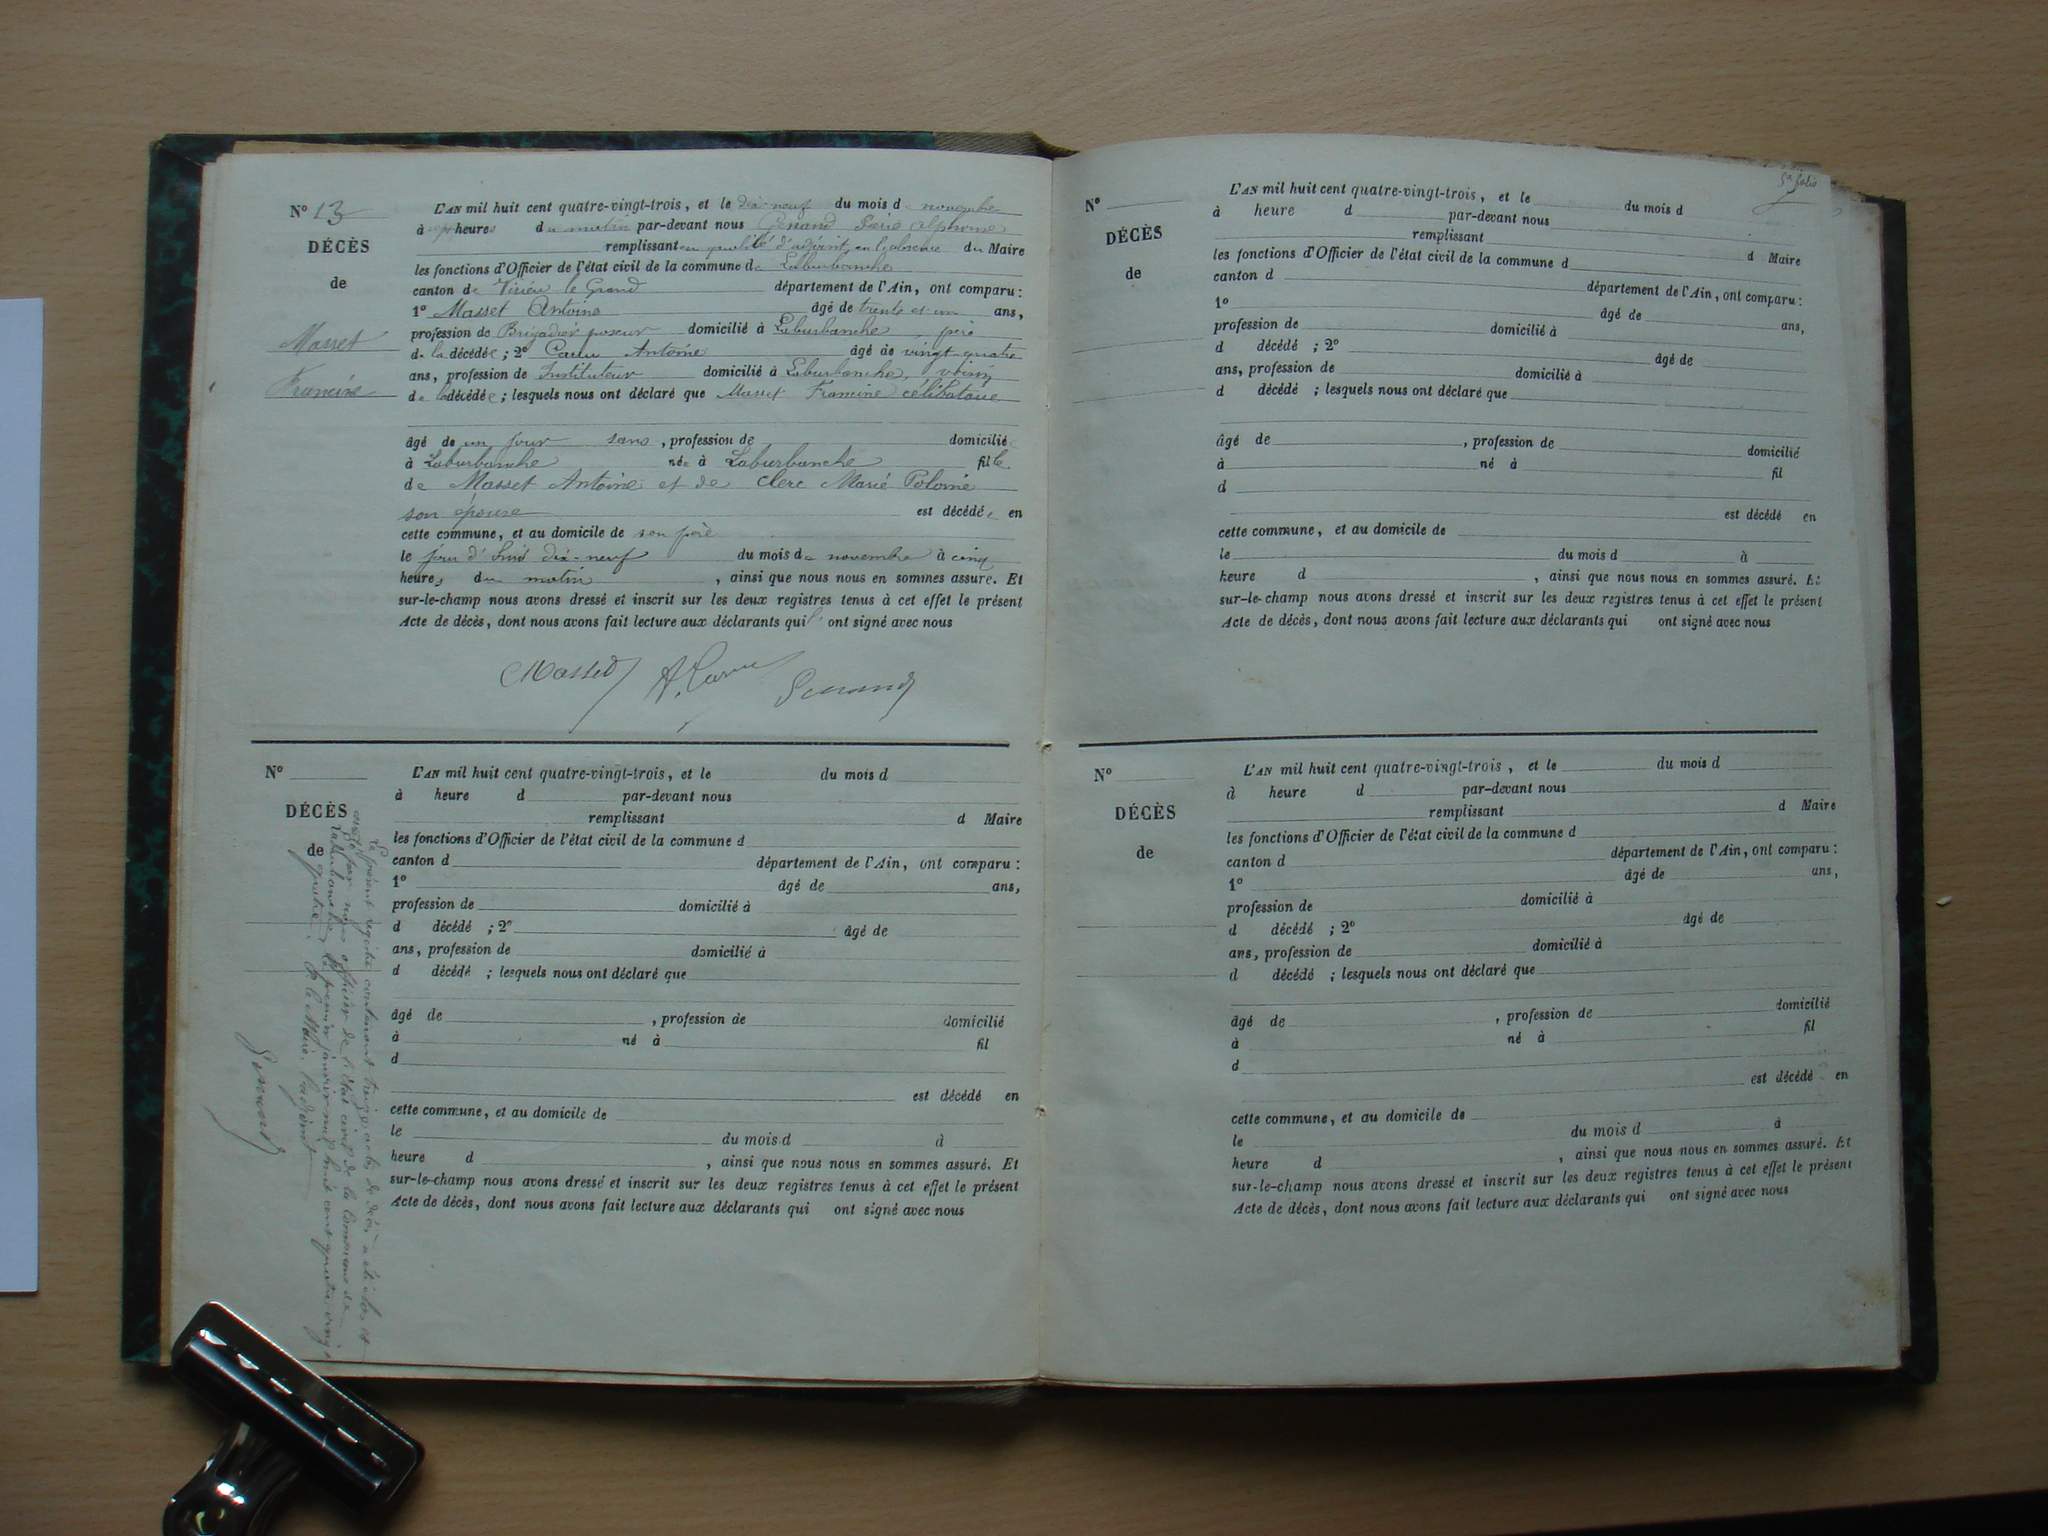 N° 13
DÉCÈS
de
Masset
Francine
L'AN mil huit cent quatre-vingt-trois, et le dix-neuf du mois de novembre
à heures du matin par-devant nous Alphonse
remplissant en qualité d'adjoint, en l'absence du Maire
les fonctions d'Officier de l'état civil de la commune de Laburbanche
canton de Virieu le Grand département de l'Ain, ont comparu :
1° Masset Antoine âgé de trente et un ans,
profession de Brigadier poseur domicilié à Laburbanche père
de la décédée ; 2° Antoine âgé de vingt-quatre
ans, profession de Instituteur domicilié à Laburbanche, voisin
de la décédée ; lesquels nous ont déclaré que Masset Francine célibataire
âgé de un jour sans, profession de domiciliée
à Laburbanche née à Laburbanche fille
de Masset Antoine et de Clerc Marie
son épouse est décédée en
cette commune, et au domicile de son père
le jour d'hui dix-neuf du mois de novembre à cinq
heures du matin, ainsi que nous nous en sommes assuré. Et
sur-le-champ nous avons dressé et inscrit sur les deux registres tenus à cet effet le présent
Acte de décès, dont nous avons fait lecture aux déclarants qui ont signé avec nous
Masset
N°
DÉCÈS
de
L'AN mil huit cent quatre-vingt-trois, et le du mois d
à heure d par-devant nous
remplissant d Maire
les fonctions d'Officier de l'état civil de la commune d
canton d département de l'Ain, ont comparu :
1° âgé de ans,
profession de domicilié à
d décédé ; 2° âgé de
ans, profession de domicilié à
d décédé ; lesquels nous ont déclaré que
âgé de , profession de domicilié
à né à fil
d
est décédé en
cette commune, et au domicile de
le du mois d à
heure d , ainsi que nous nous en sommes assuré. Et
sur-le-champ nous avons dressé et inscrit sur les deux registres tenus à cet effet le présent
Acte de décès, dont nous avons fait lecture aux déclarants qui ont signé avec nous
Le présent registre contenant treize actes de décès a été clos et
arrêté par nous officier de l'état civil de la Commune de
Laburbanche, le premier janvier mil huit cent quatre vingt
quatre. P. le Maire, l'adjoint
5e folio
N°
DÉCÈS
de
L'AN mil huit cent quatre-vingt-trois, et le du mois d
à heure d par-devant nous
remplissant
d Maire
les fonctions d'Officier de l'état civil de la commune d
canton d département de l'Ain, ont comparu :
1° âgé de ans,
profession de domicilié à
d décédé ; 2° âgé de
ans, profession de domicilié à
d décédé ; lesquels nous ont déclaré que
âgé de , profession de domicilié
à né à fil
d
est décédé en
cette commune, et au domicile de
le du mois d à
heure d , ainsi que nous nous en sommes assuré. Et
sur-le-champ nous avons dressé et inscrit sur les deux registres tenus à cet effet le présent
Acte de décès, dont nous avons fait lecture aux déclarants qui ont signé avec nous
N°
DÉCÈS
de
L'AN mil huit cent quatre-vingt-trois, et le du mois d
à heure d par-devant nous
remplissant d Maire
les fonctions d'Officier de l'état civil de la commune d
canton d département de l'Ain, ont comparu :
1° âgé de ans,
profession de domicilié à
d décédé ; 2° âgé de
ans, profession de domicilié à
d décédé ; lesquels nous ont déclaré que
âgé de , profession de domicilié
à né à fil
d
est décédé en
cette commune, et au domicile de
le du mois d à
heure d , ainsi que nous nous en sommes assuré. Et
sur-le-champ nous avons dressé et inscrit sur les deux registres tenus à cet effet le présent
Acte de décès, dont nous avons fait lecture aux déclarants qui ont signé avec nous